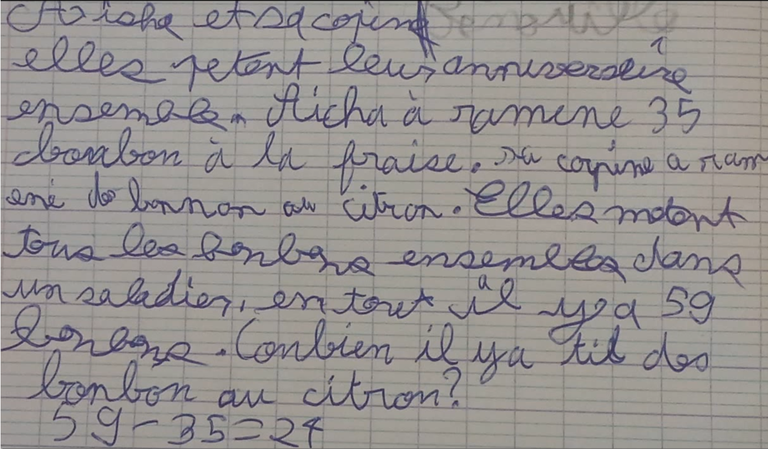 Aicha et sa copine
elles fetent leur anniverseire
ensemble. Aicha à ramene 35
bonbon à la fraise. sa copine a ram
ené de bonnon au citron. Elles metent
tous les bonbons ensembles dans
un saladier, en tout il y a 59
bonbons. Conbien il ya til des
bonbon au citron?
59-35=24